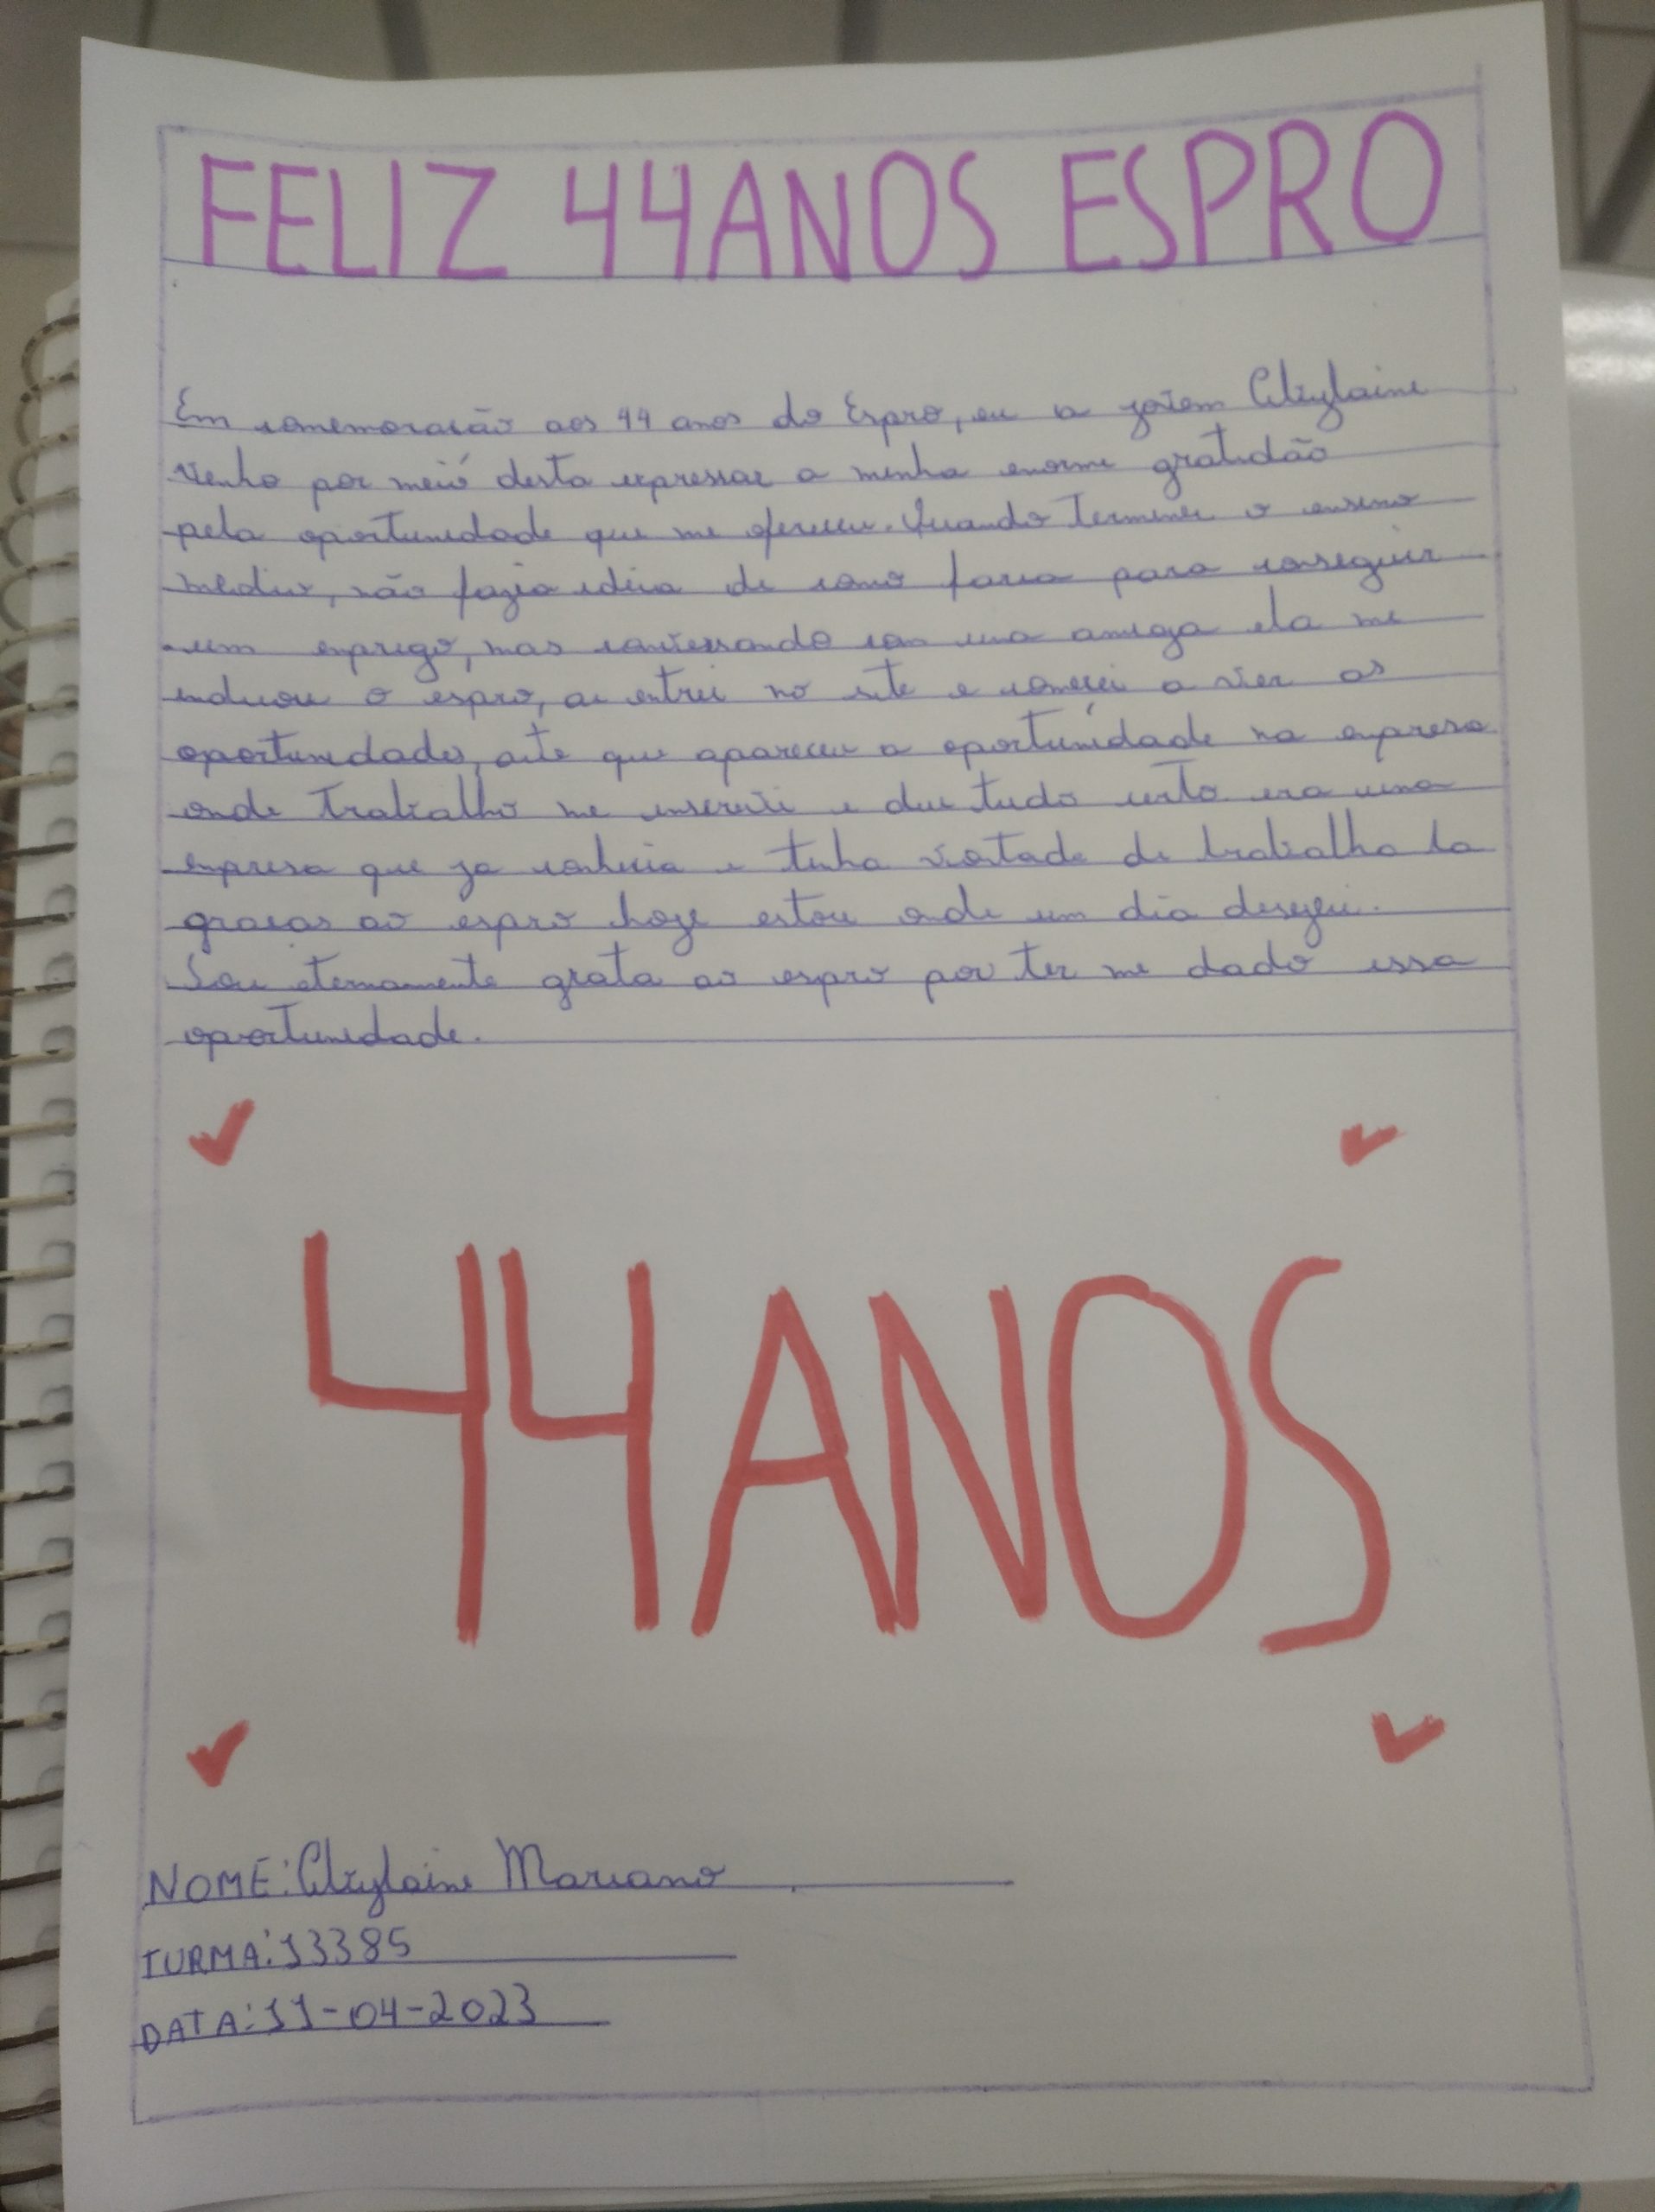 FELIZ 44 ANOS ESPRO
Em comemoracão aos 44 anos do Espro, eu a jovem
venho por meio desta expressar a minha enorme gratidão
pela oportunidade que me ofereceu. Quando terminei o ensino
médio, não fazia ideia de como faria para conseguir
um emprego, mas conversando com uma amiga ela me
indicou o espro, ai entrei no site e comecei a ver as
oportunidades, até que apareceu a oportunidade na empresa
onde trabalho me inscrevi e deu tudo certo era uma
empresa que ja conhecia e tinha vontade de trabalha la
gracas ao espro hoje estou onde um dia desejei.
Sou eternamente grata ao espro por ter me dado essa
oportunidade.
44 ANOS
NOME: Mariano
TURMA: 13385
DATA: 11-04-2023